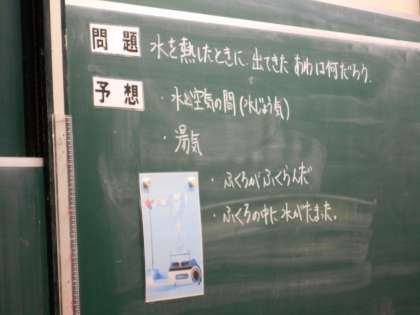 問題 水を熱したときに出てきたあわは何だろう。
予想 ・水と空気の間(水じょう気)
・湯気
・ふくろがふくらんだ
・ふくろの中に水がたまった。